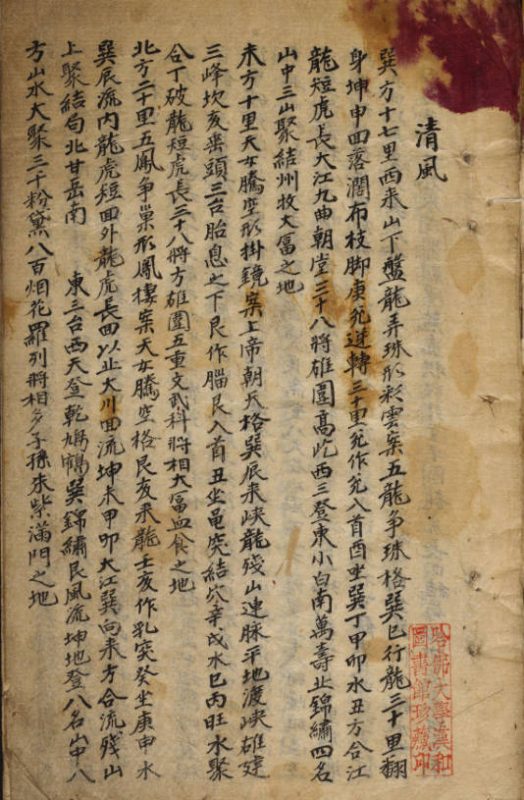 清風
巽方十七里西来山下盤龍弄珠形彩雲案五龍争珠格巽巳行龍三十里翻
身坤申回落濶布枝脚庚兊逆轉三十里兊作兊入首酉坐巽丁甲卯水丑方合江
龍短虎長大江九曲朝堂三十八將雄圍高屹西三登東小白南萬壽北錦繡四名
山中三山聚結州牧大富之地
未方十里天女騰空形掛鏡案上帝朝天格巽辰来峽龍殘山連脉平地渡峽雄建
三峰坎亥巒頭三台胎息之下艮作腦艮入首丑坐突結穴辛戌水巳丙旺水聚
合丁破龍短虎長三十八將方雄圍五重文武科將相大富血食之地
北方二十里五鳳争巢形鳳樓案天女騰空格艮亥来龍壬亥作乳突癸坐庚申水
巽辰流内龍虎短回外龍虎長回以止大川回流坤未甲卯大江巽向来方合流殘山
上聚結局北甘岳南 東三台西天登乾鳩巽錦繡艮風流坤地登八名山中八
方山水大聚三千粉黛八百烟花羅列將相多子孫朱紫滿門之地
哈佛大學漢和
圖書館珍藏印